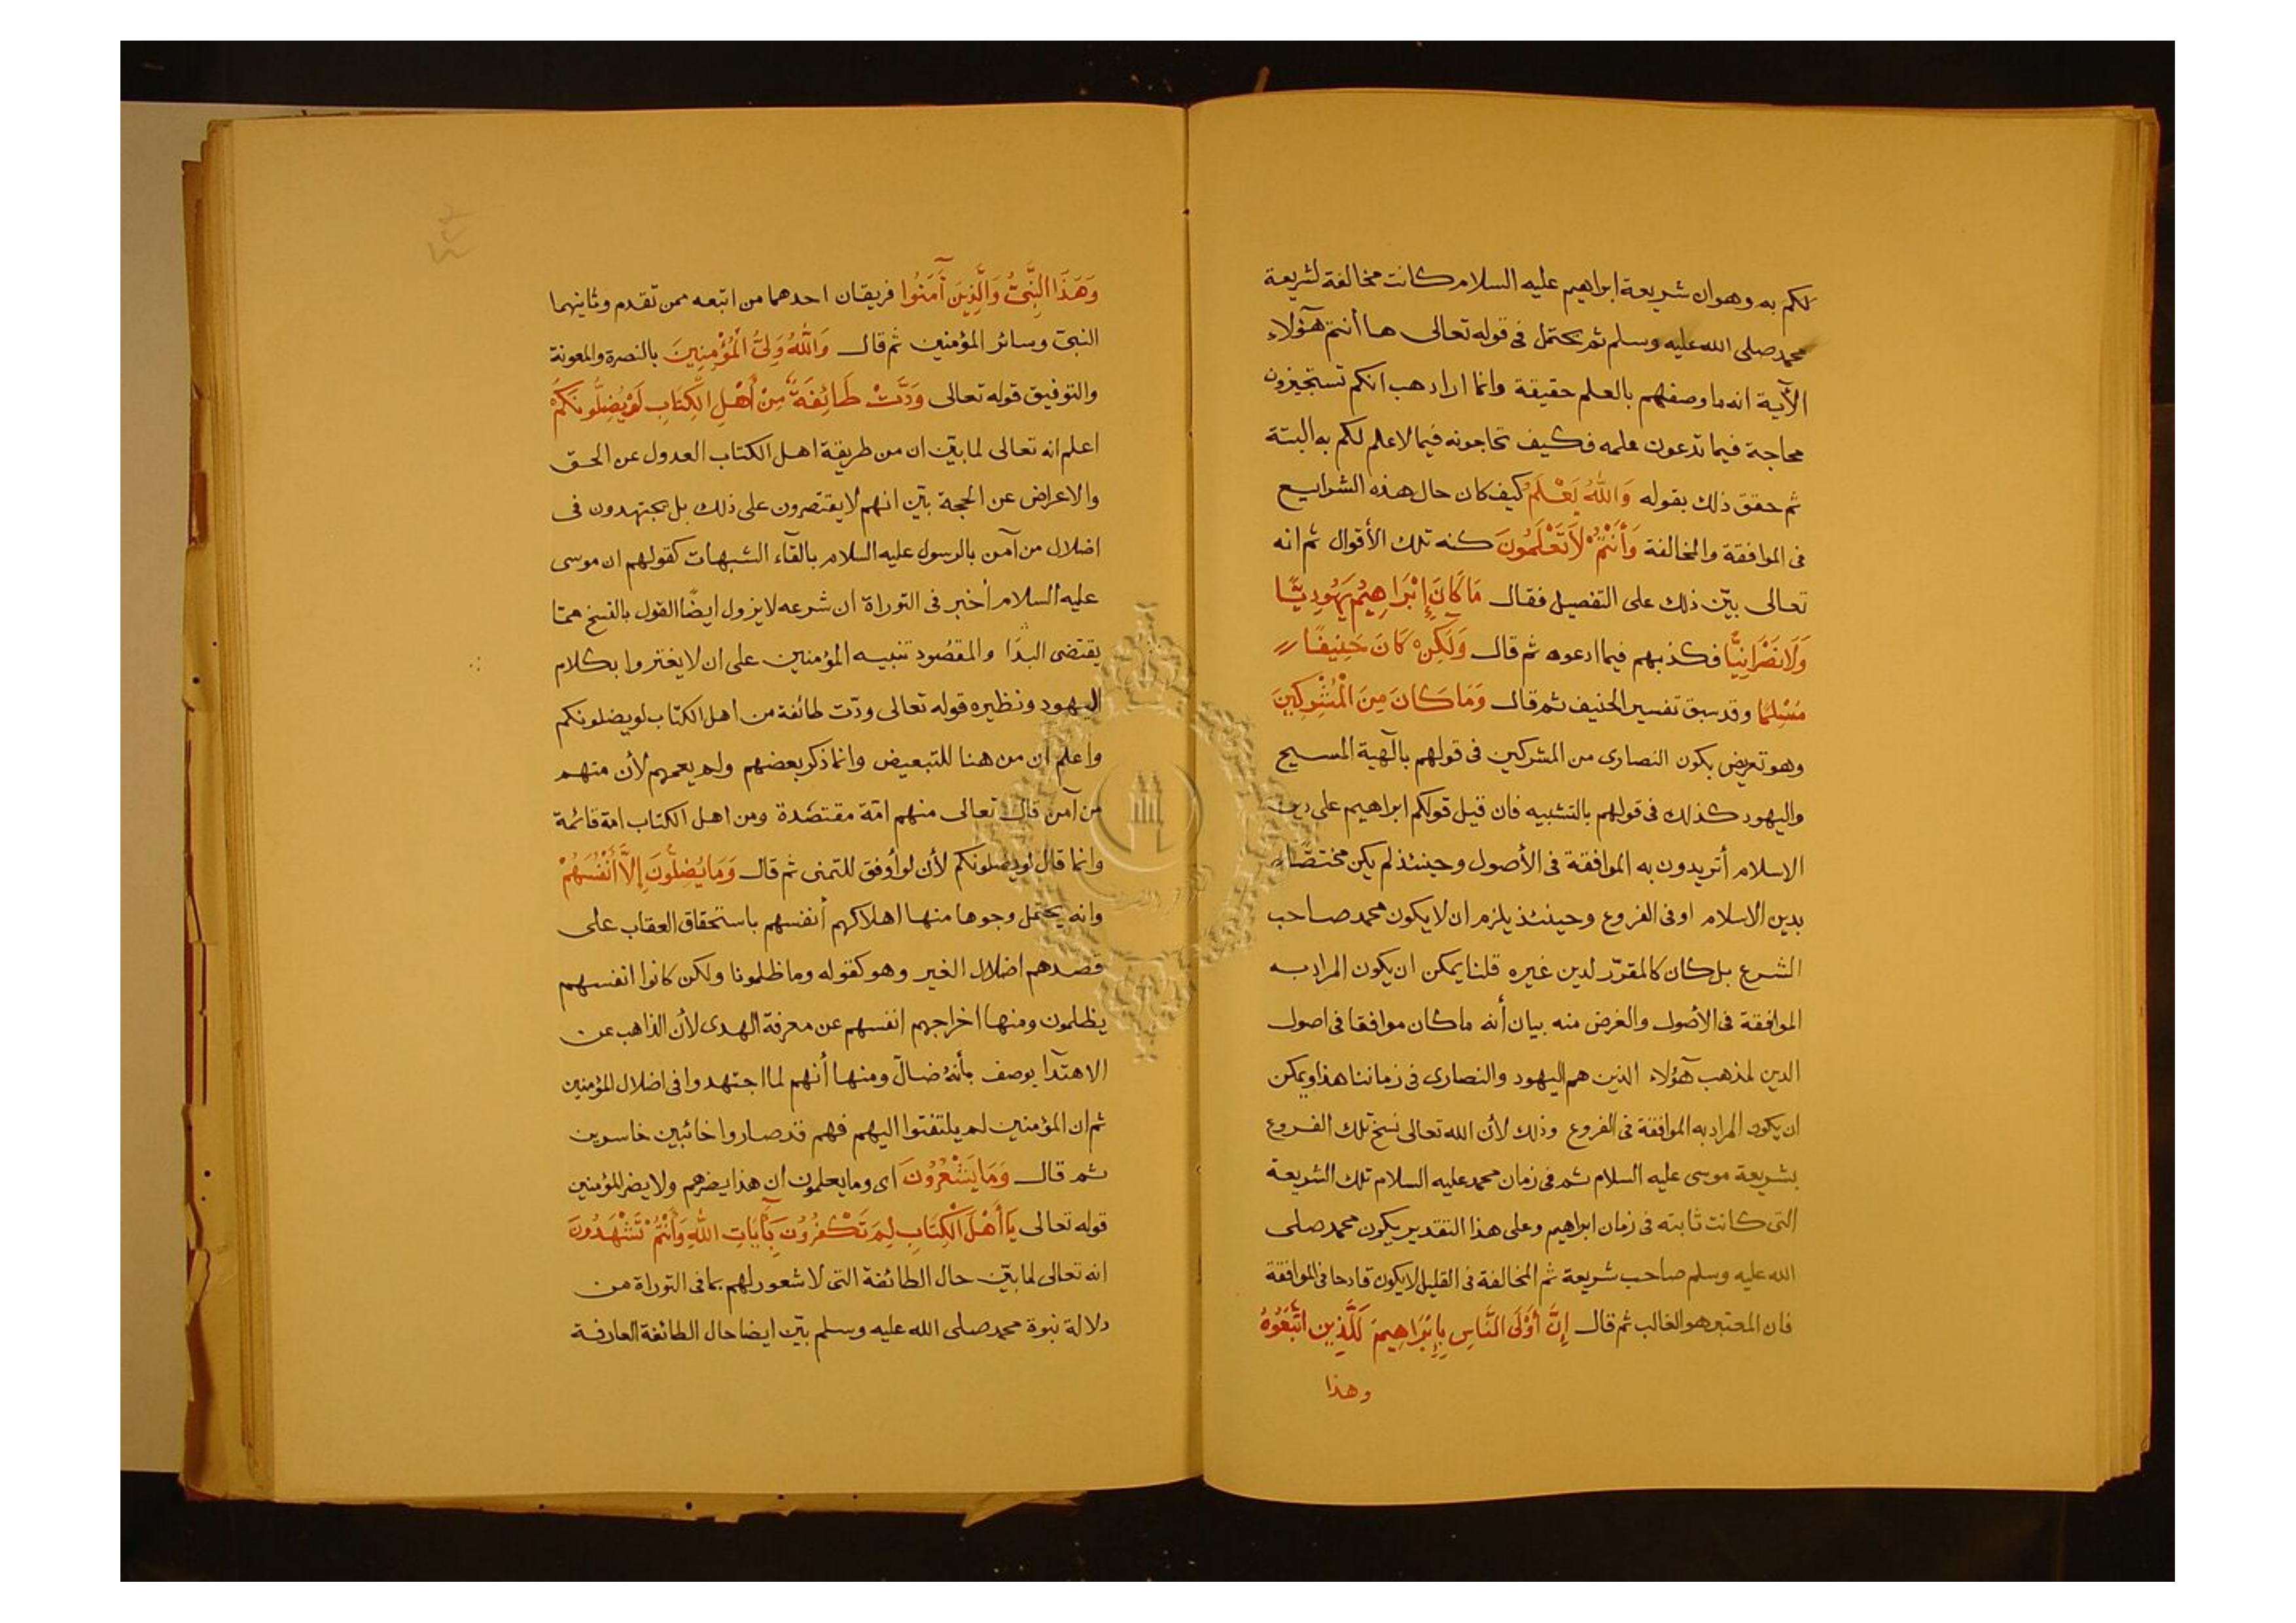 لكم به وهو ان شريعة ابراهيم عليه السلام كانت مخالفة لشريعة
محمد صلى الله عليه وسلم ثم يحتمل فى قوله تعالى ها أنتم هؤلاء
الآية انه ما وصفهم بالعلم حقيقة وانما اراد هب انكم تستجيزون
محاجة فيما تدعون علمه فكيف تحاجونه فيما لا علم لكم به البتة
ثم حقق ذلك بقوله وَاللَّهُ يَعْلَمُ كيف كان حال هذه الشرايع
فى الموافقة والمخالفة وَأَنْتُمْ لَا تَعْلَمُونَ كنه تلك الأقوال ثم انه
تعالى بيّن ذلك على التفصيل فقال مَا كَانَ إِبْرَاهِيمُ يَهُودِيًّا
وَلَا نَصْرَانِيًّا فكذبهم فيما ادعوه ثم قال وَلَكِنْ كَانَ حَنِيفًا
مُسْلِمًا وقد سبق تفسير الحنيف ثم قال وَمَا كَانَ مِنَ الْمُشْرِكِينَ
وهو تعريض بكون النصارى من المشركين فى قولهم بالٓهية المسيح
واليهود كذلك فى قولهم بالتشبيه فان قيل قولكم ابراهيم على دين
الاسلام أتريدون به الموافقة فى الأصول وحينئذ لم يكن مختصًّا
بدين الاسلام او فى الفروع وحينئذ يلزم ان لا يكون محمد صاحب
الشرع بل كان كالمقرّر لدين غيره قلنا يمكن ان يكون المراد به
الموافقة فى الأصول والغرض منه بيان أنه ما كان موافقا فى اصول
الدين لمذهب هؤلاء الذين هم اليهود والنصارى فى زماننا هذا ويمكن
ان يكون المراد به الموافقة فى الفروع وذلك لأن الله تعالى نسخ تلك الفروع
بشريعة موسى عليه السلام ثم فى زمان محمد عليه السلام تلك الشريعة
التى كانت ثابته فى زمان ابراهيم وعلى هذا التقدير يكون محمد صلى
الله عليه وسلم صاحب شريعة ثم المخالفة فى القليل لا يكون قادحا فى الموافقة
فان المعتبر هو الغالب ثم قال إِنَّ أَوْلَى النَّاسِ بِإِبْرَاهِيمَ لَلَّذِينَ اتَّبَعُوهُ
وهذا
وَهَذَا النَّبِىُّ وَالَّذِينَ آمَنُوا فريقان احدهما من اتبعه ممن تقدم وثانيهما
النبىّ وسائر المؤمنين ثم قال وَاللَّهُ وَلِىُّ الْمُؤْمِنِينَ بالنصرة والمعونة
والتوفيق قوله تعالى وَدَّتْ طَائِفَةٌ مِنْ أَهْلِ الْكِتَابِ لَوْ يُضِلُّونَكُمْ
اعلم انه تعالى لما بيّن ان من طريقة اهل الكتاب العدول عن الحق
والاعراض عن الحجة بيّن انهم لا يقتصرون على ذلك بل يجتهدون فى
اضلال من آمن بالرسول عليه السلام بالقآء الشبهات كقولهم ان موسى
عليه السلام أخبر فى التوراة ان شرعه لا يزول ايضًا القول بالنسخ مما
يقتضى البدَا والمقصُود تنبيه المؤمنين على ان لا يغتروا بكلام
اليهود ونظيره قوله تعالى ودّت طائفة من اهل الكتاب لو يضلونكم
واعلم ان من هنا للتبعيض وانما ذكر بعضهم ولم يعمهم لأن منهم
من آمن قال تعالى منهم امّة مقتصدة ومن اهل الكتاب امة قائمة
وانما قال لو يضلونكم لأن لو أوفق للتمنى ثم قال وَمَا يُضِلُّونَ إِلَّا أَنْفُسَهُمْ
وانه يحتمل وجوها منها اهلاكهم أنفسهم باستحقاق العقاب على
قصدهم اضلال الغير وهو كقوله وما ظلمونا ولكن كانوا انفسهم
يظلمون ومنها اخراجهم انفسهم عن معرفة الهدى لأن الذاهب عن
الاهتدآ يوصف بأنه ضالّ ومنها أنهم لما اجتهدوا فى اضلال المؤمنين
ثم ان المؤمنين لم يلتفتوا اليهم فهم قد صاروا خائبين خاسرين
ثم قال وَمَا يَشْعُرُونَ اى وما يعلمون ان هذا يضرهم ولا يضر المؤمنين
قوله تعالى يَا أَهْلَ الْكِتَابِ لِمَ تَكْفُرُونَ بِآيَاتِ اللَّهِ وَأَنْتُمْ تَشْهَدُونَ
انه تعالى لما بيّن حال الطائفة التى لا شعور لهم بما فى التوراة من
دلالة نبوة محمد صلى الله عليه وسلم بيّن ايضا حال الطائفة العارفة